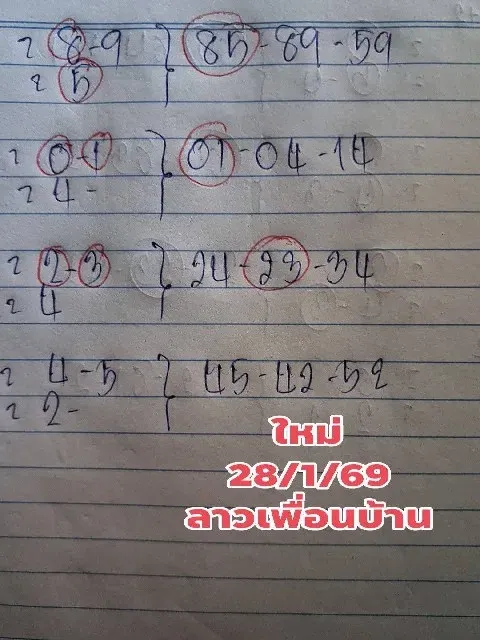 2 8-9 } 85-89-59
2 5
2 0-1 } 01-04-14
2 4-
2 2-3 } 24-23-34
2 4
2 4-5 } 45-42-52
2 2-
ใหม่
28/1/69
ลาวเพื่อนบ้าน